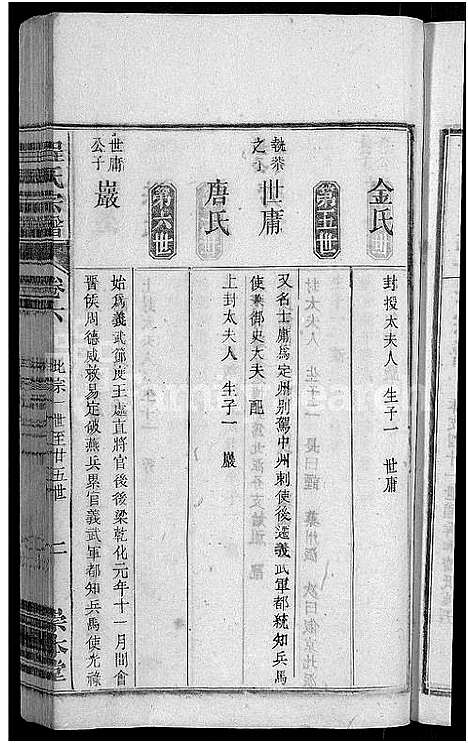 金氏
封授太夫人 生子一 世庸
第五世
執恭之子
世庸
又名士庸爲定州別駕中州刺使後遷義武軍都統知兵馬
使兼御史大夫 配
唐氏
上封太夫人 生子一 巖
第六世
世庸公子
巖
始爲義武節度王處直將官後後梁乾化元年十一月間會
晉侯周德威救易定破燕兵累官義武軍都知兵馬使光祿
程氏宗譜
卷六
此宗一世至廿五世
二
崇本堂